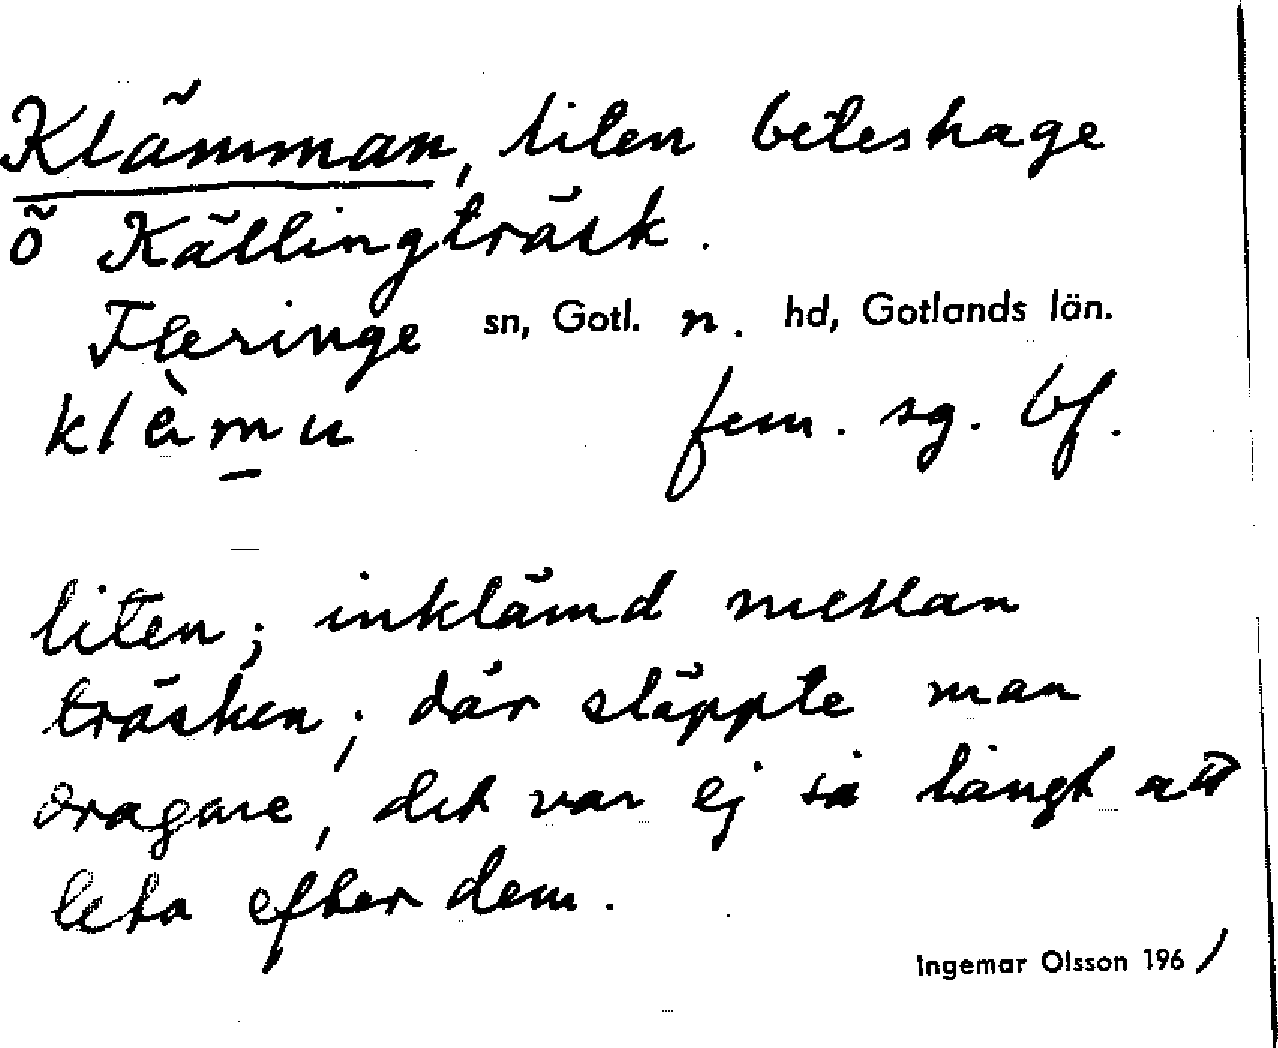 Klämman, liten beteshage
ö Källingträsk.
Fleringe sn, Gotl. n. hd, Gotlands län.
klὲmu fem. sg. bf.
liten; inklämd mellan
träsken; där släppte man
dragare, det var ej så långt att
leta efter dem.
Ingemar Olsson 1961